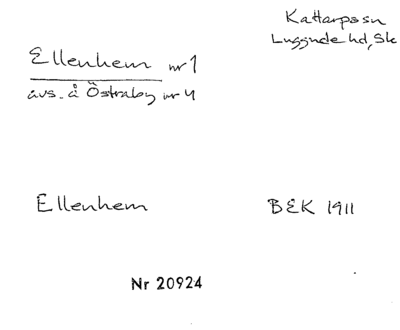 Kattarps sn
Luggude hd, Sk
Ellenhem nr 1
avs. å Östraby nr 4
Ellenhem
BEK 1911
Nr 20924